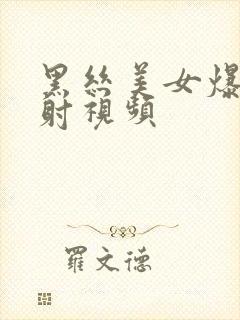 黑絲美女爆
射視頻
羅文德